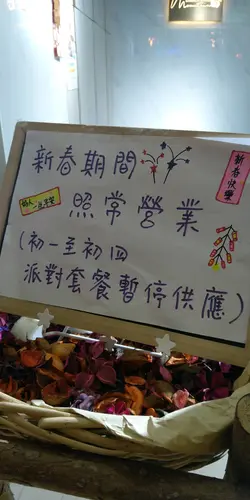 新春期間
新春快樂
照常營業
(初一至初四
派對套餐暫停供應)